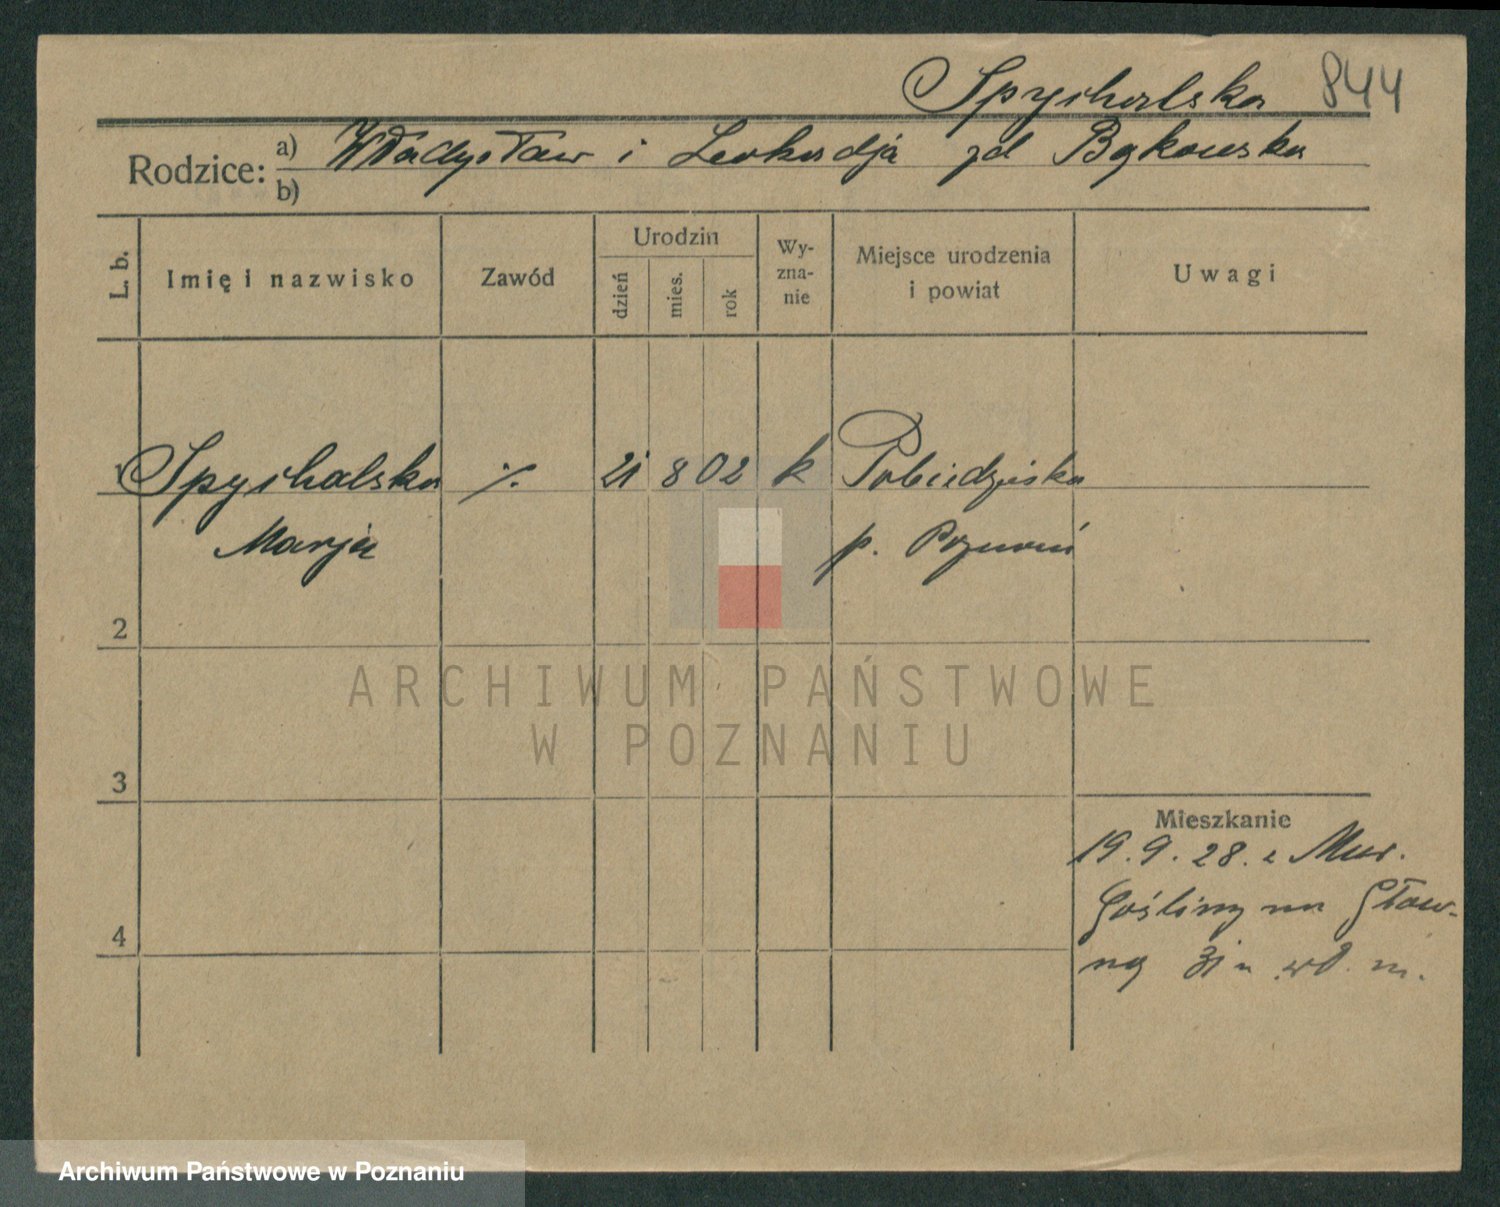 Spychalska 844
Rodzice: a) Władysław i Leokadja zd Bąkowska
b)
L. b. Imię i nazwisko Zawód Urodzin dzień mies. rok Wy-zna-nie Miejsce urodzenia i powiat Uwagi
1 Spychalska ·/. 21 8 02 k Pobiedziska
Marja p. Poznań
2
ARCHIWUM PAŃSTWOWE
W POZNANIU
3
Mieszkanie
19.9.28. z Mur.
Gośliny na Głow-
4
ną 31 u wł. m.
Archiwum Państwowe w Poznaniu